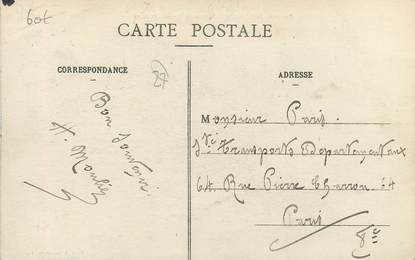 60t
CARTE POSTALE
CORRESPONDANCE
ADRESSE
Bon souvenir.
Monsieur Paris.
Sté Transports Départementaux
64 Rue Pierre Charron 64
Paris
8e